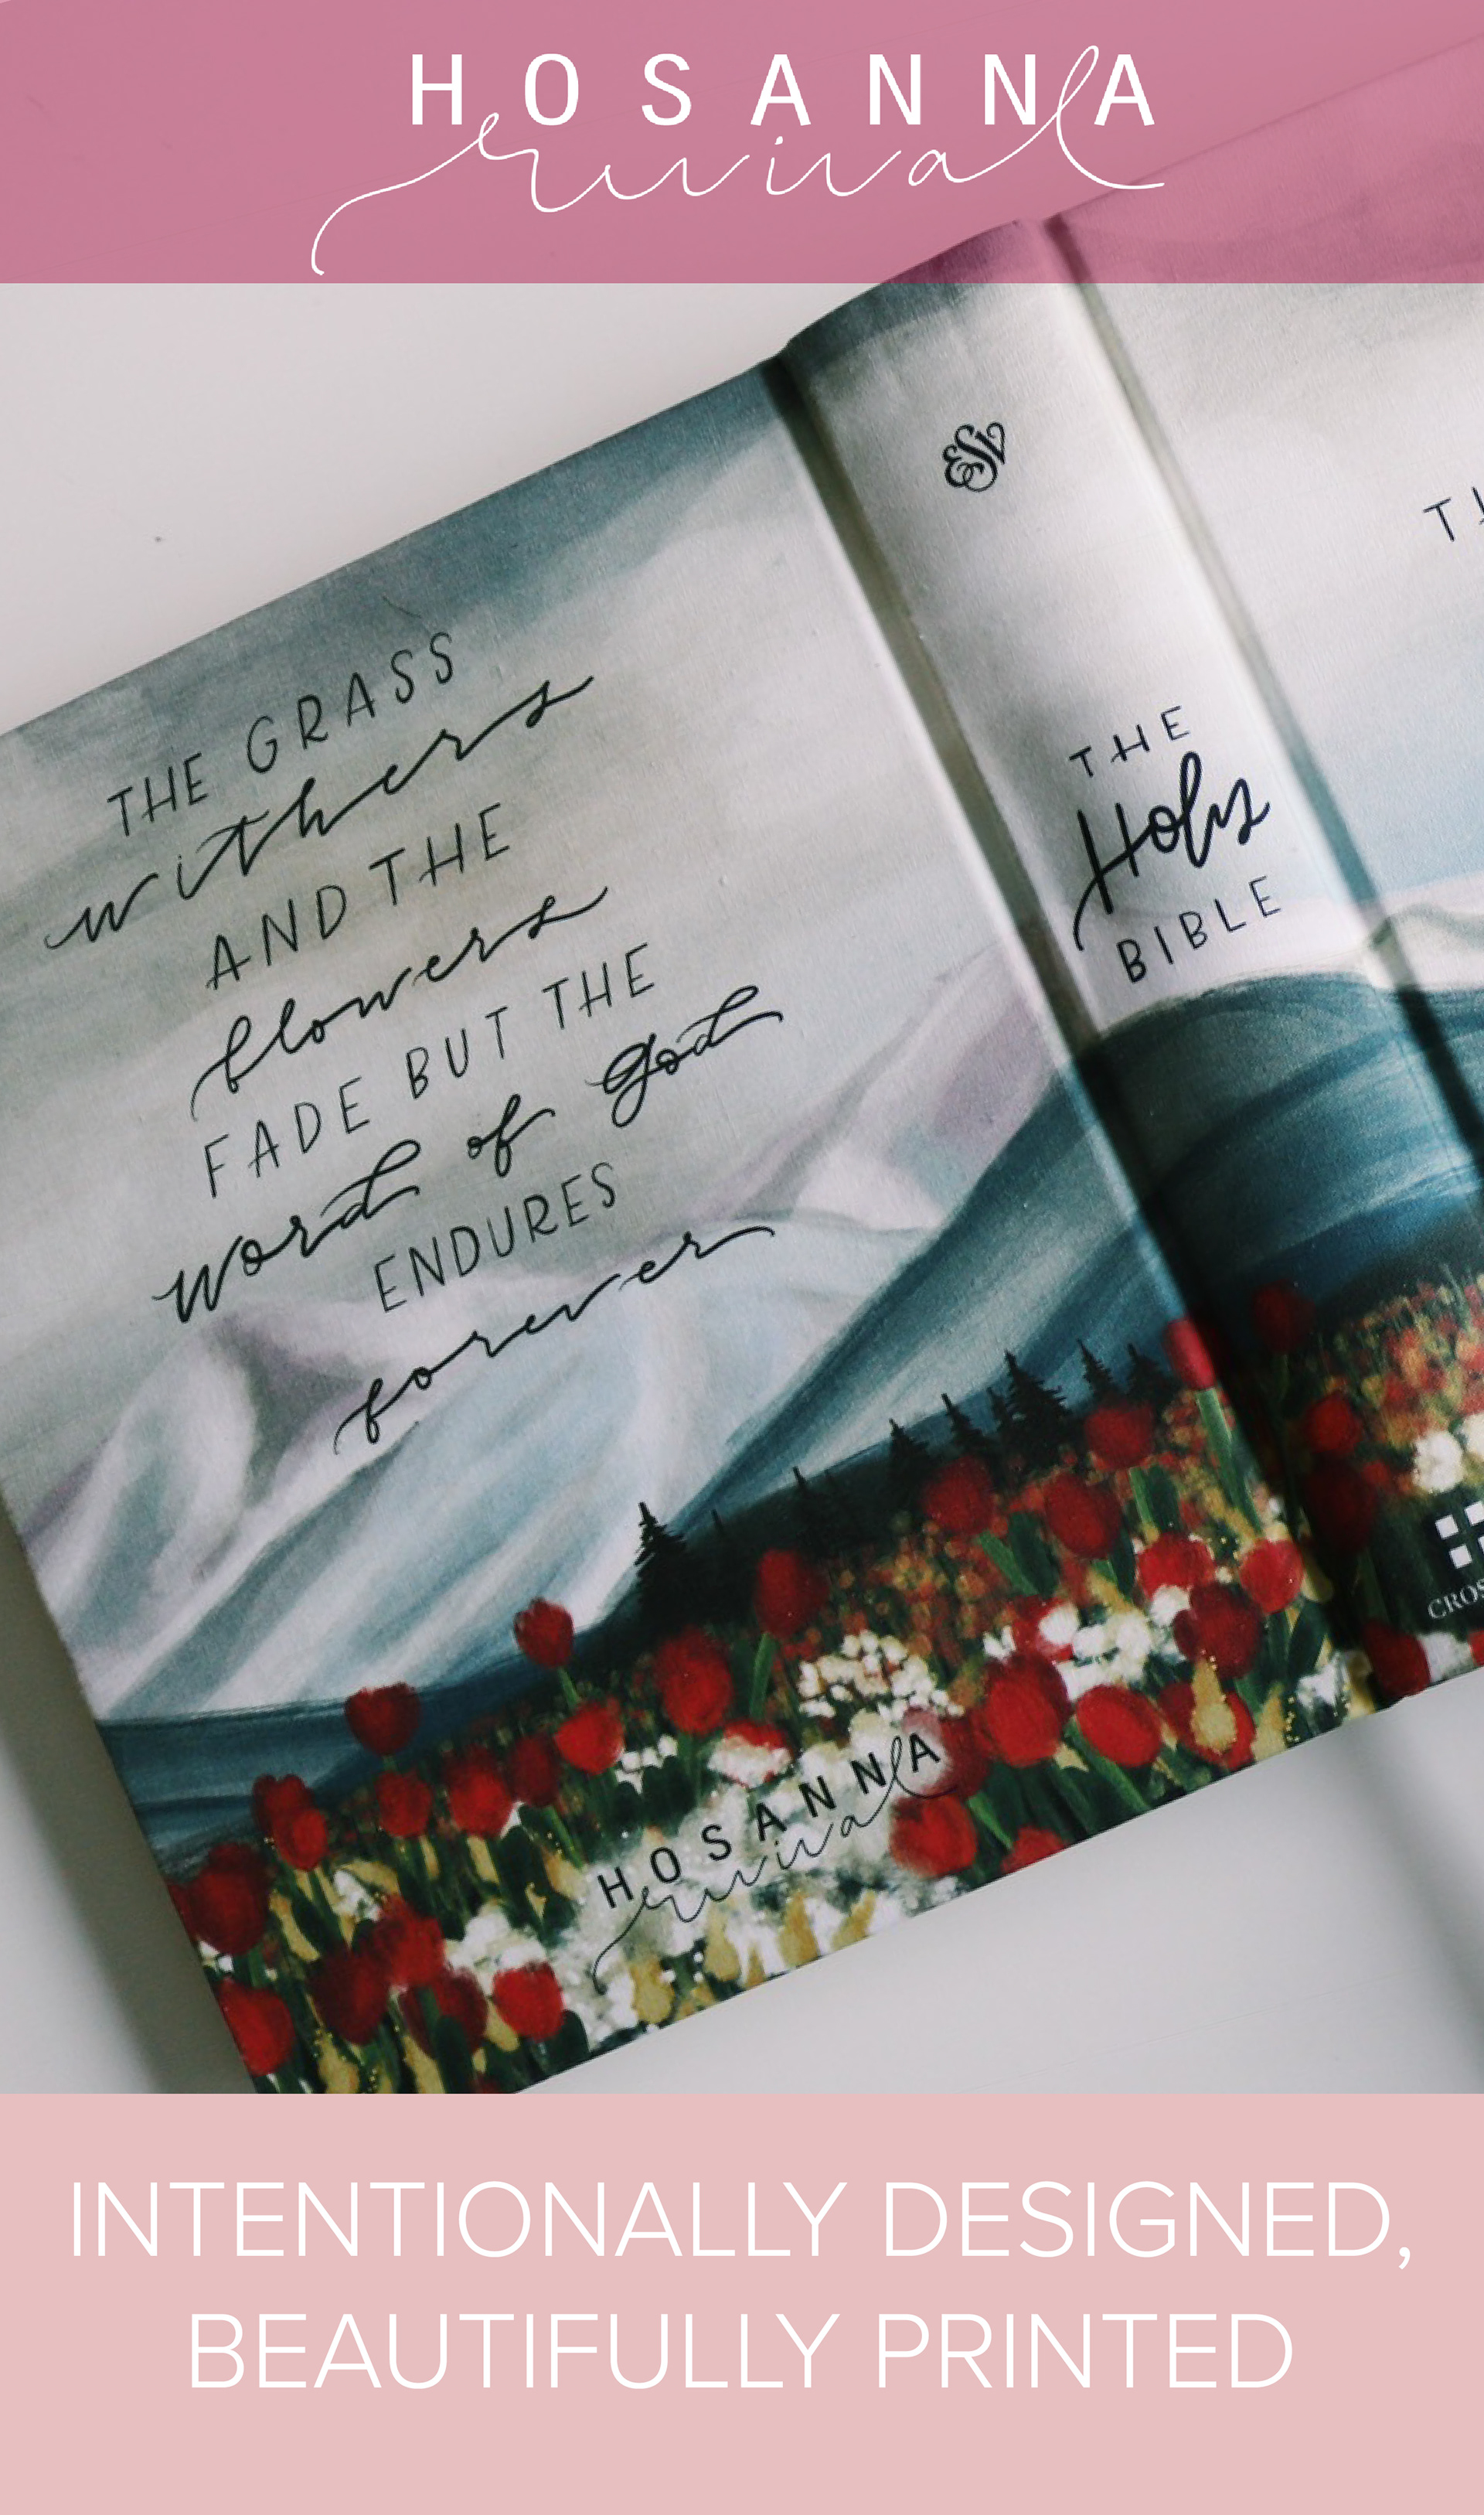 HOSANNA
revival
THE GRASS
withers
AND THE
flowers
FADE BUT THE
word of god
ENDURES
forever
HOSANNA
revival
ESV
THE
Holy
BIBLE
INTENTIONALLY DESIGNED,
BEAUTIFULLY PRINTED